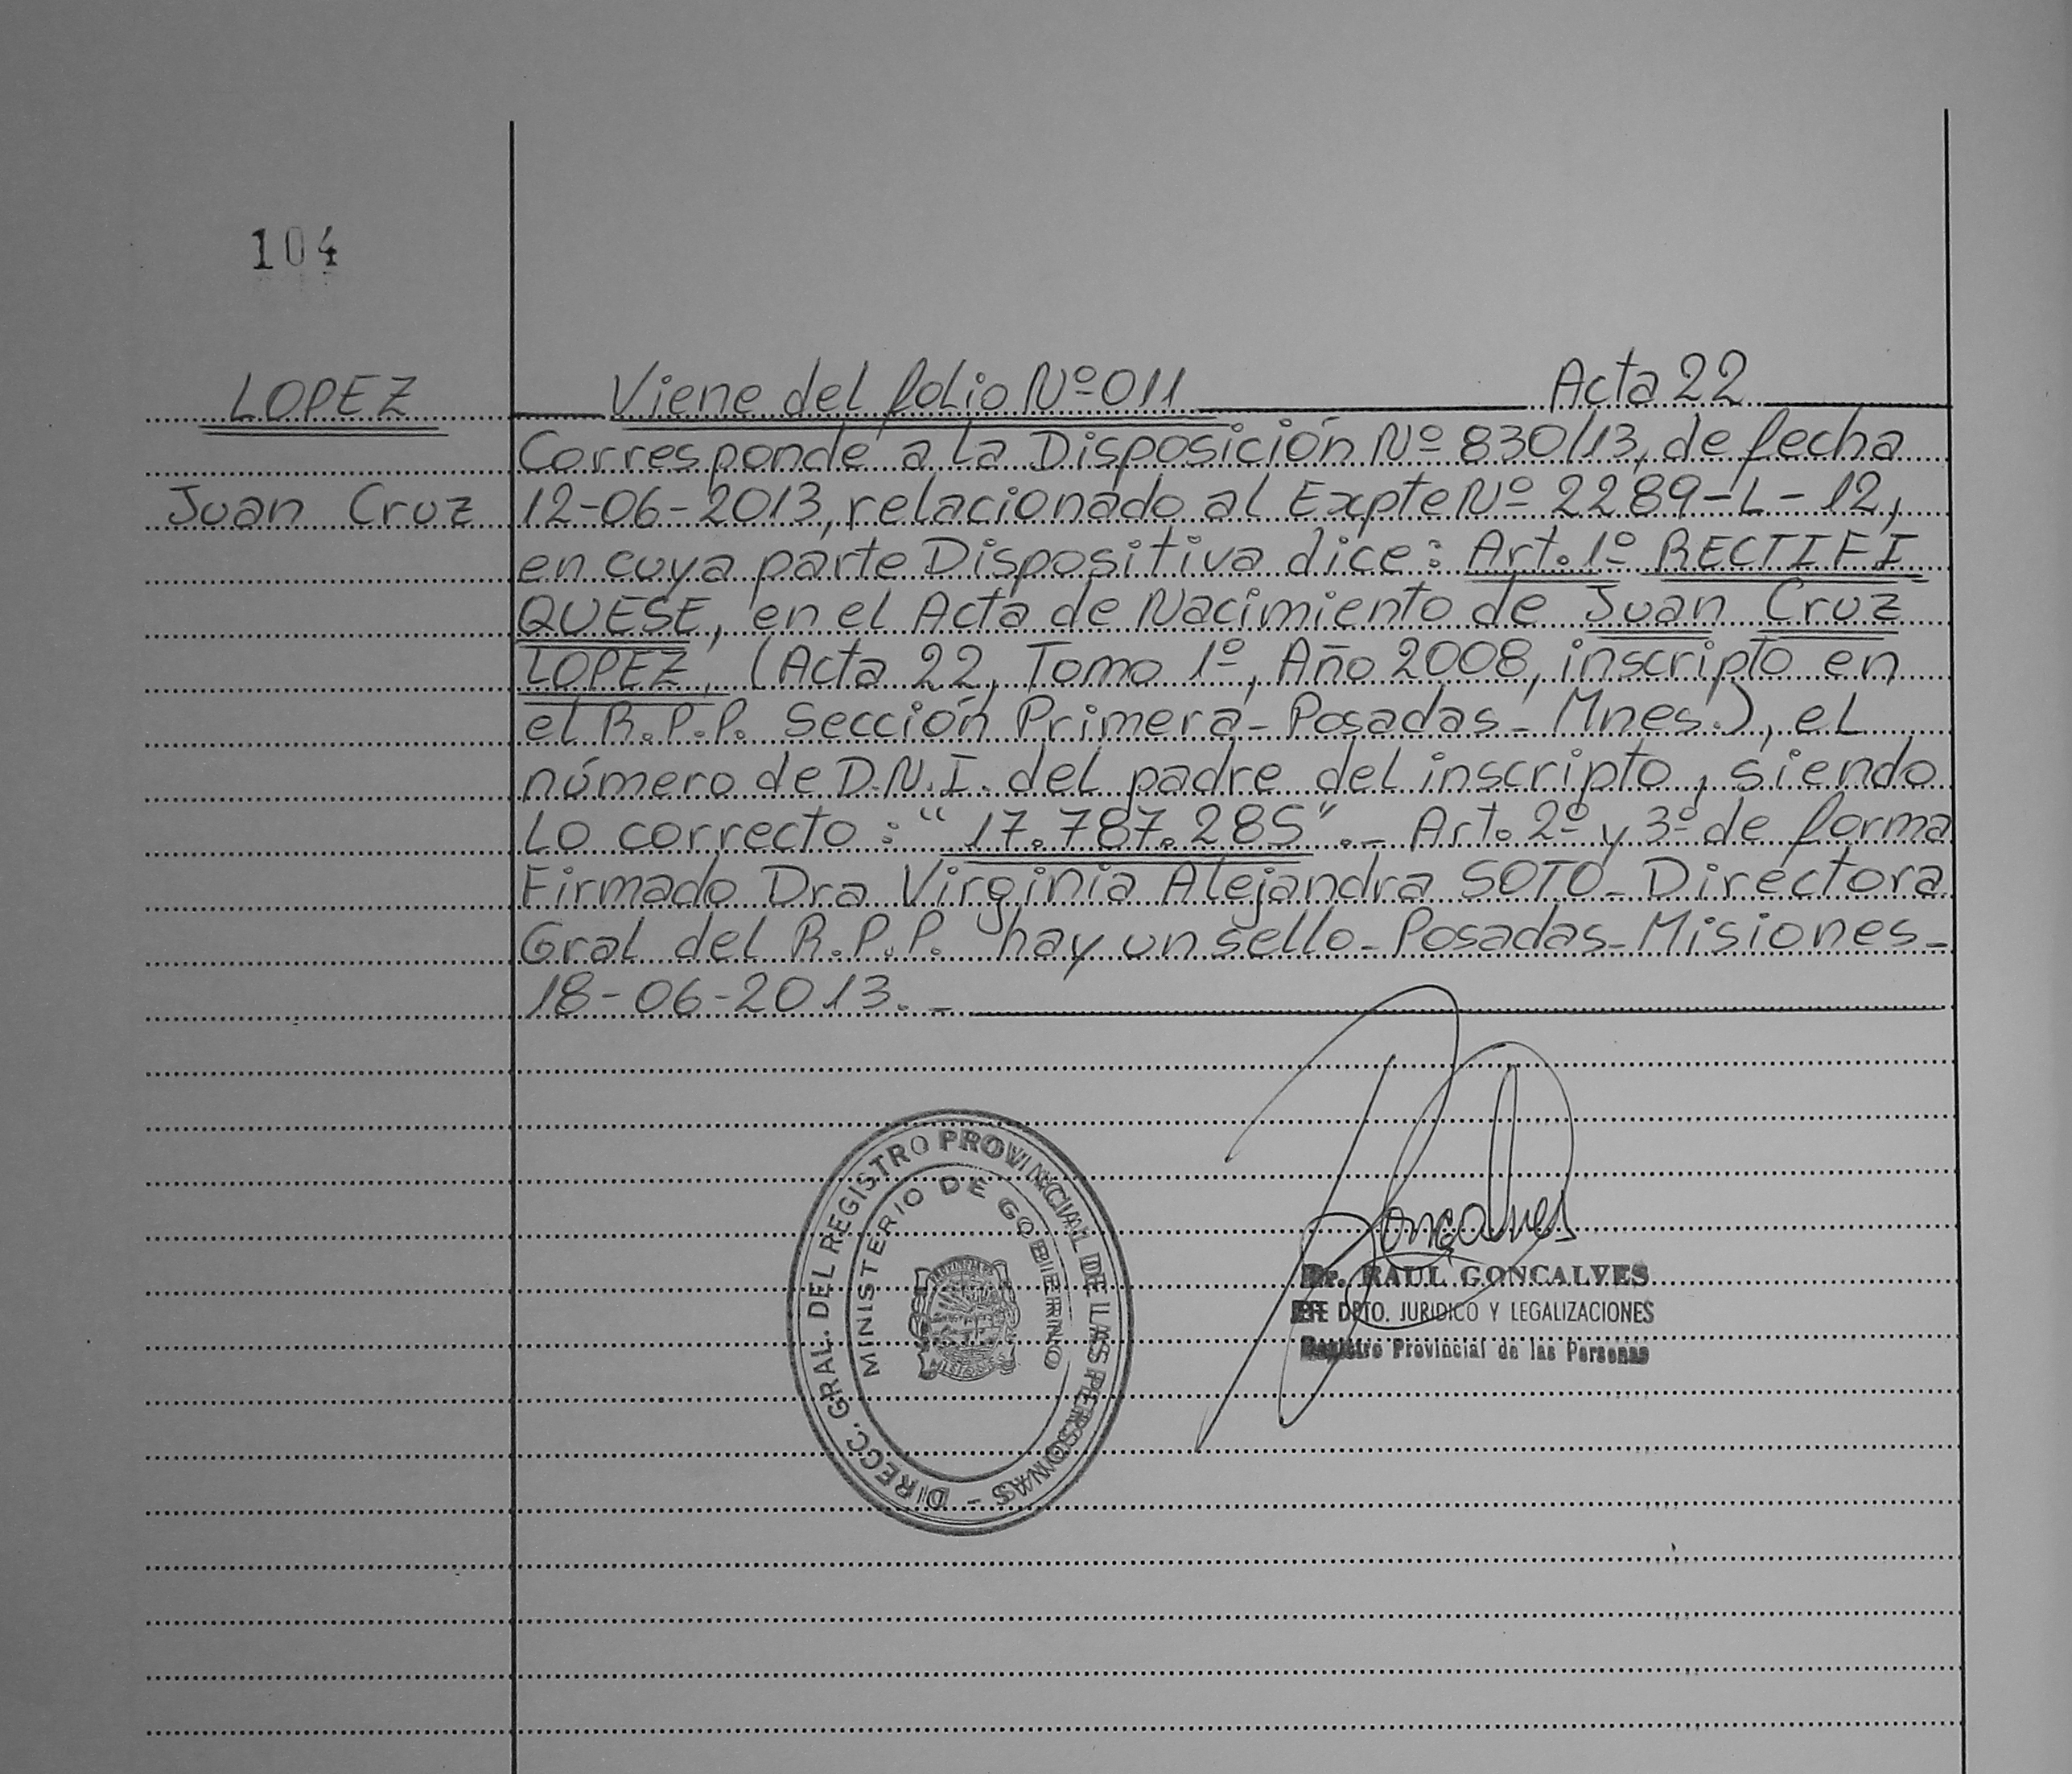 104
LOPEZ
Juan Cruz
Viene del folio Nº 011 Acta 22
Corresponde a la Disposición Nº 830/13, de fecha
12-06-2013, relacionado al Expte Nº 2289-L-12,
en cuya parte Dispositiva dice: Art. 1º RECTIFI
QUESE, en el Acta de Nacimiento de Juan Cruz
LOPEZ, (Acta 22, Tomo 1º, Año 2008, inscripto en
el R.P.P. Sección Primera-Posadas-Mnes.), el
número de D.N.I. del padre del inscripto, siendo
Lo correcto: "17.787.285".- Art. 2º y 3º de forma
Firmado Dra Virginia Alejandra SOTO-Directora
Gral del R.P.P. hay un sello-Posadas-Misiones-
18-06-2013.-
DIRECC. GRAL. DEL REGISTRO PROVINCIAL DE LAS PERSONAS -
MINISTERIO DE GOBIERNO
MISIONES
Goncalves
Dr. RAUL GONCALVES
JEFE DPTO. JURIDICO Y LEGALIZACIONES
Registro Provincial de las Personas